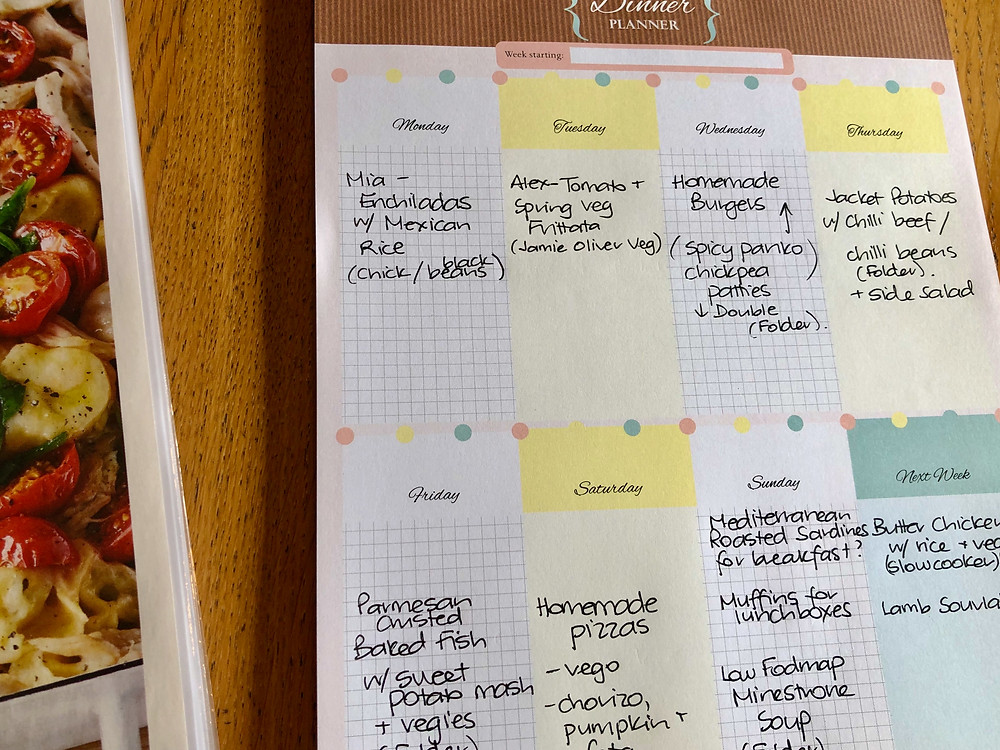 Dinner
PLANNER
Week starting:
Monday
Mia -
Enchiladas
w/ Mexican
Rice
(Chick/black beans)
Tuesday
Alex-Tomato +
Spring veg
Frittata
(Jamie Oliver Veg)
Wednesday
Homemade
Burgers ↑
(Spicy panko)
chickpea
patties
↓ Double
(Folder).
Thursday
Jacket Potatoes
w/ Chilli beef/
chilli beans
(Folder).
+ side salad
Friday
Parmesan
Crusted
Baked fish
w/ sweet
potato mash
+ vegies
(Folder)
Saturday
Homemade
pizzas
- vego
- chorizo,
pumpkin +
feta
Sunday
Mediterranean
Roasted Sardines
for breakfast?
Muffins for
lunchboxes
Low Fodmap
Minestrone
Soup
(Folder)
Next Week
Butter Chicken
w/ rice + veg
(slowcooker)
Lamb Souvla